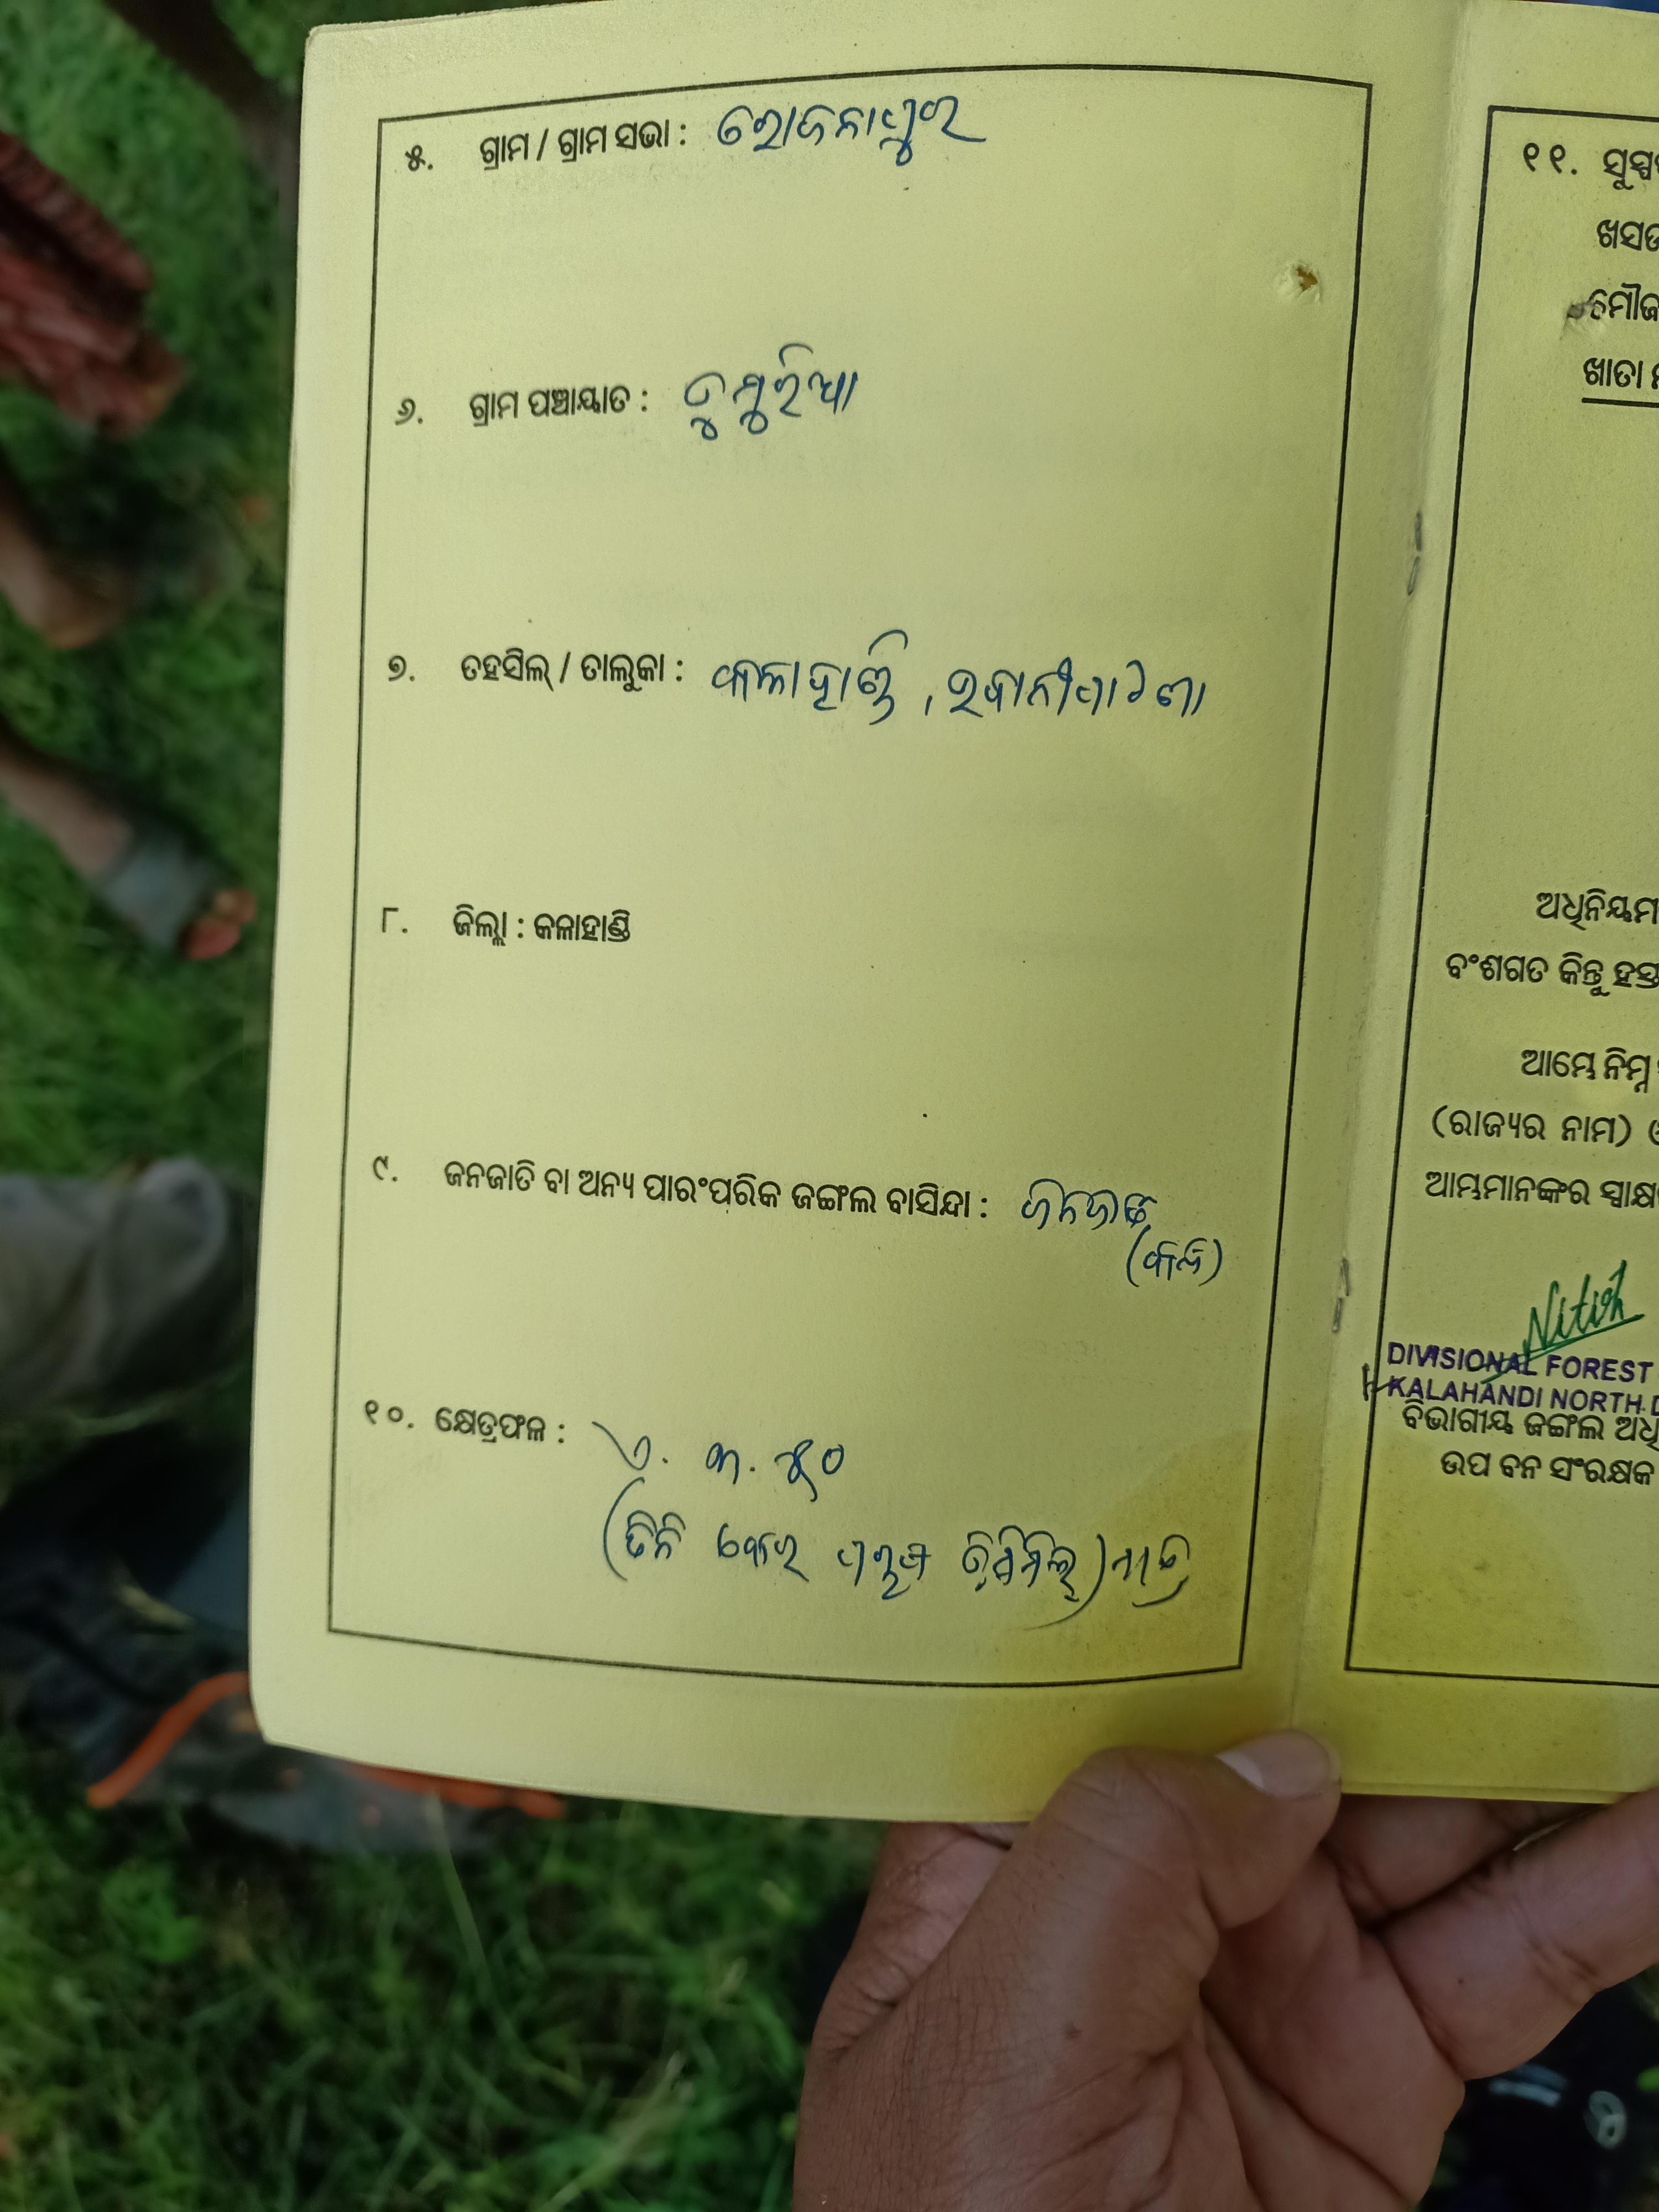 ୫. ଗ୍ରାମ / ଗ୍ରାମ ସଭା :
୬. ଗ୍ରାମ ପଞ୍ଚାୟାତ : ଡୁମୁରିଆ
୭. ତହସିଲ୍ / ତାଲୁକା : କଳାହାଣ୍ଡି, ଭବାନୀପାଟଣା
୮. ଜିଲ୍ଲା : କଳାହାଣ୍ଡି
୯. ଜନଜାତି ବା ଅନ୍ୟ ପାରଂପରିକ ଜଙ୍ଗଲ ବାସିନ୍ଦା : ଜନଜାତି
(କନ୍ଧ)
୧୦. କ୍ଷେତ୍ରଫଳ : ଏ. ୩. ୫୦
(ତିନି ଏକର ପଚାଶ ଡିସିମିଲ୍) ମାତ୍ର
୧୧. ସୁସ୍ପ
ଖସଡ
ମୌଜ
ଖାତା
ଅଧିନିୟମ
ବଂଶଗତ କିନ୍ତୁ ହସ୍ତ
ଆମ୍ଭେ ନିମ୍ନ
(ରାଜ୍ୟର ନାମ)
ଆମ୍ଭମାନଙ୍କର ସ୍ୱାକ୍ଷ
Nitish
DIVISIONAL FOREST
KALAHANDI NORTH D
ବିଭାଗୀୟ ଜଙ୍ଗଲ ଅଧି
ଉପ ବନ ସଂରକ୍ଷକ